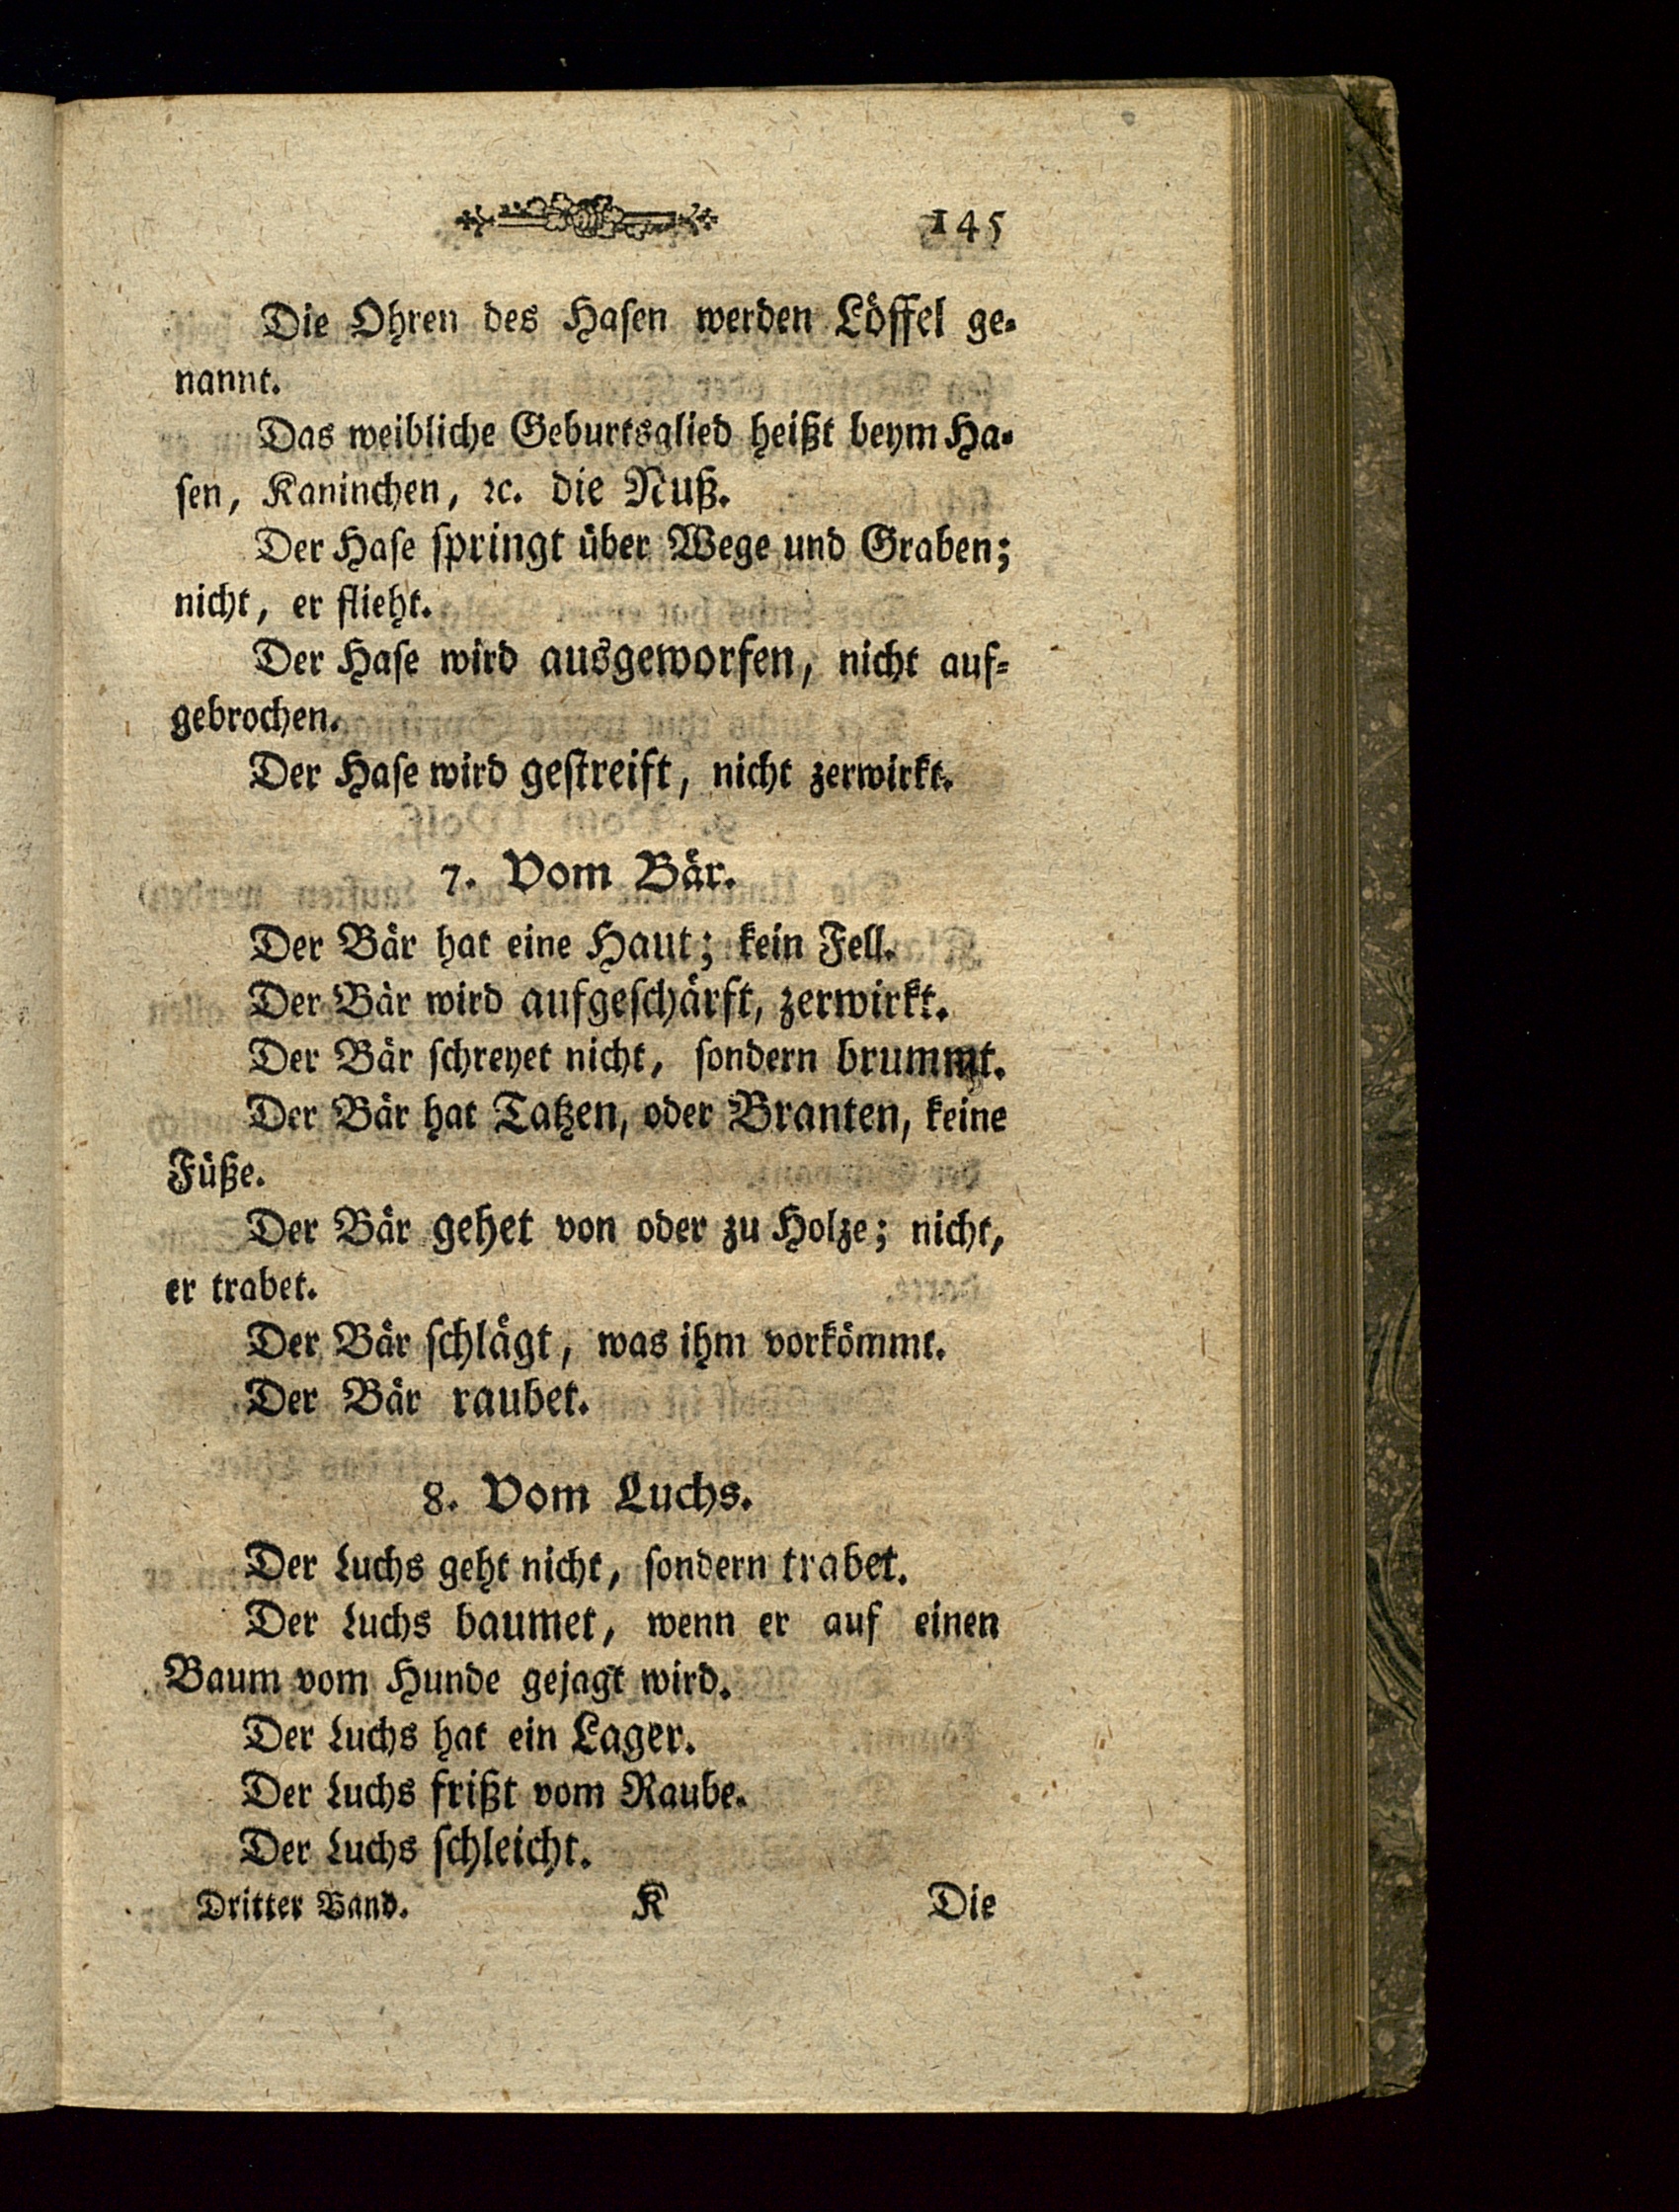 145
Die Ohren des Haſen werden Löffel ge-
nannt.
Das weibliche Geburtsglied heißt beym Ha-
ſen, Kaninchen, ꝛc. die Nuß.
Der Haſe ſpringt über Wege und Graben;
nicht, er flieht.
Der Haſe wird ausgeworfen, nicht auf-
gebrochen.
Der Haſe wird geſtreift, nicht zerwirkt.
7. Vom Bär.
Der Bär hat eine Haut; kein Fell.
Der Bär wird aufgeſchärft, zerwirkt.
Der Bär ſchreyet nicht, ſondern brummt.
Der Bär hat Tatzen, oder Branten, keine
Füße.
Der Bär gehet von oder zu Holze; nicht,
er trabet.
Der Bär ſchlägt, was ihm vorkömmt.
Der Bär raubet.
8. Vom Luchs.
Der Luchs geht nicht, ſondern trabet.
Der Luchs baumet, wenn er auf einen
Baum vom Hunde gejagt wird.
Der Luchs hat ein Lager.
Der Luchs frißt vom Raube.
Der Luchs ſchleicht.
Dritter Band. K Die